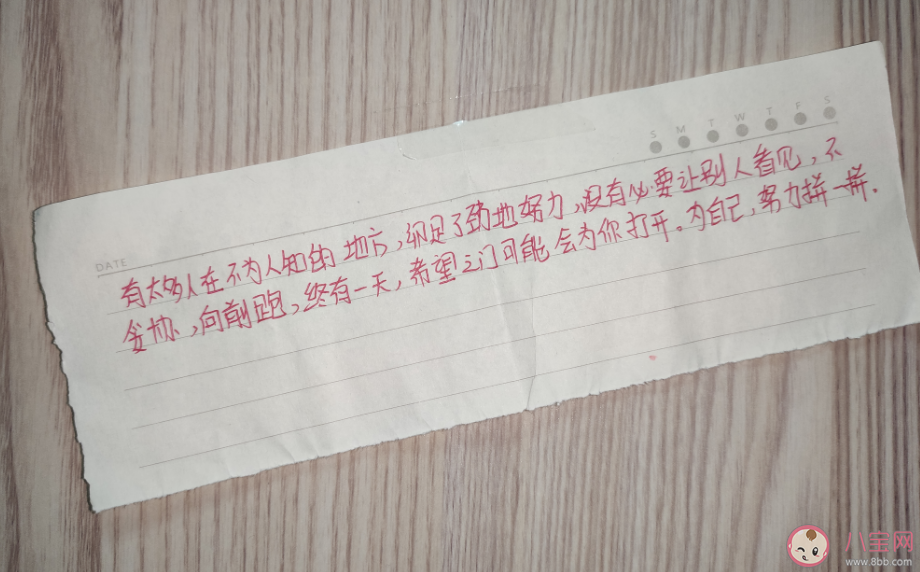 S M T W T F S
DATE
有太多人在不为人知的地方,卯足了劲地努力,没有必要让别人看见,不
妥协,向前跑,终有一天,希望之门可能会为你打开。为自己,努力拼一拼.
八宝网
www.8bb.com